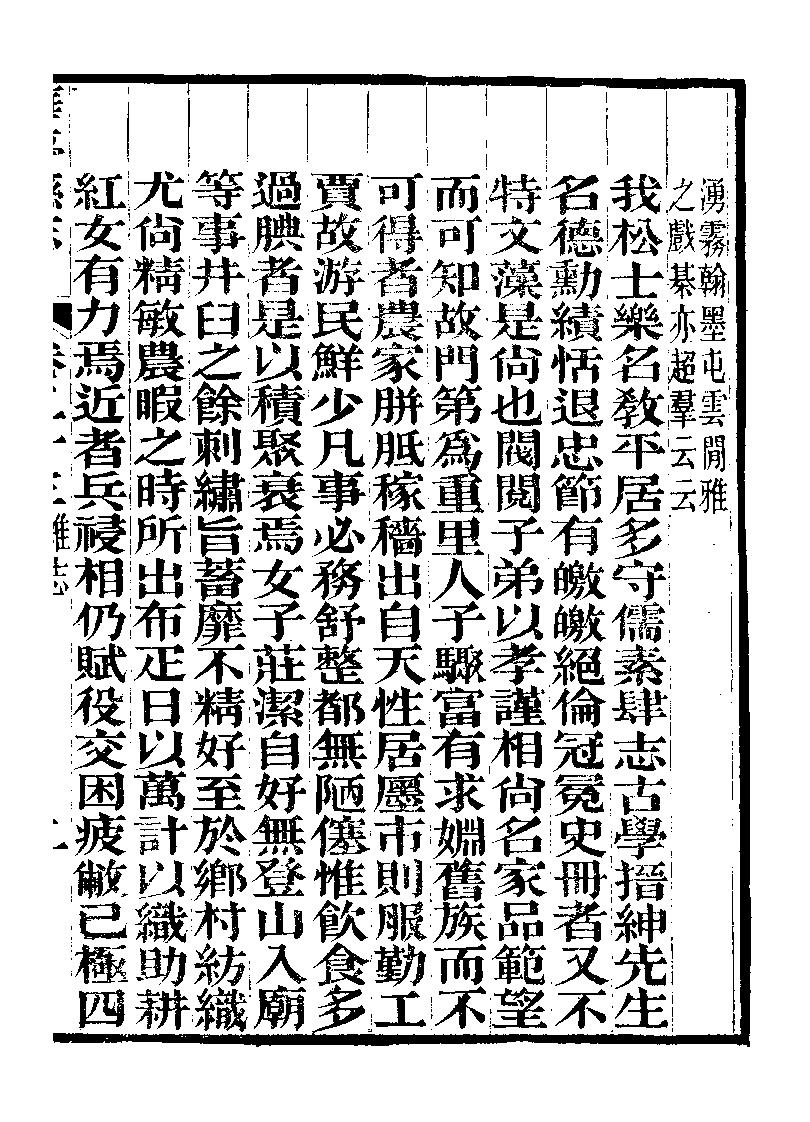 湧霧翰墨屯雲閒雅
之戲棊亦超羣云云
我松士樂名敎平居多守儒素肆志古學搢紳先生
名德勳績恬退忠節有皦皦絕倫冠冕史冊者又不
特文藻是尙也閥閱子弟以孝謹相尙名家品範望
而可知故門第爲重里人子驟富有求婣舊族而不
可得者農家胼胝稼穡出自天性居廛市則服勤工
賈故游民鮮少凡事必務舒整都無陋僿惟飮食多
過腆者是以積聚衰焉女子莊潔自好無登山入廟
等事井臼之餘刺繡旨蓄靡不精好至於鄉村紡織
尤尙精敏農暇之時所出布疋日以萬計以織助耕
紅女有力焉近者兵祲相仍賦役交困疲敝已極四
卷二十三 雜志